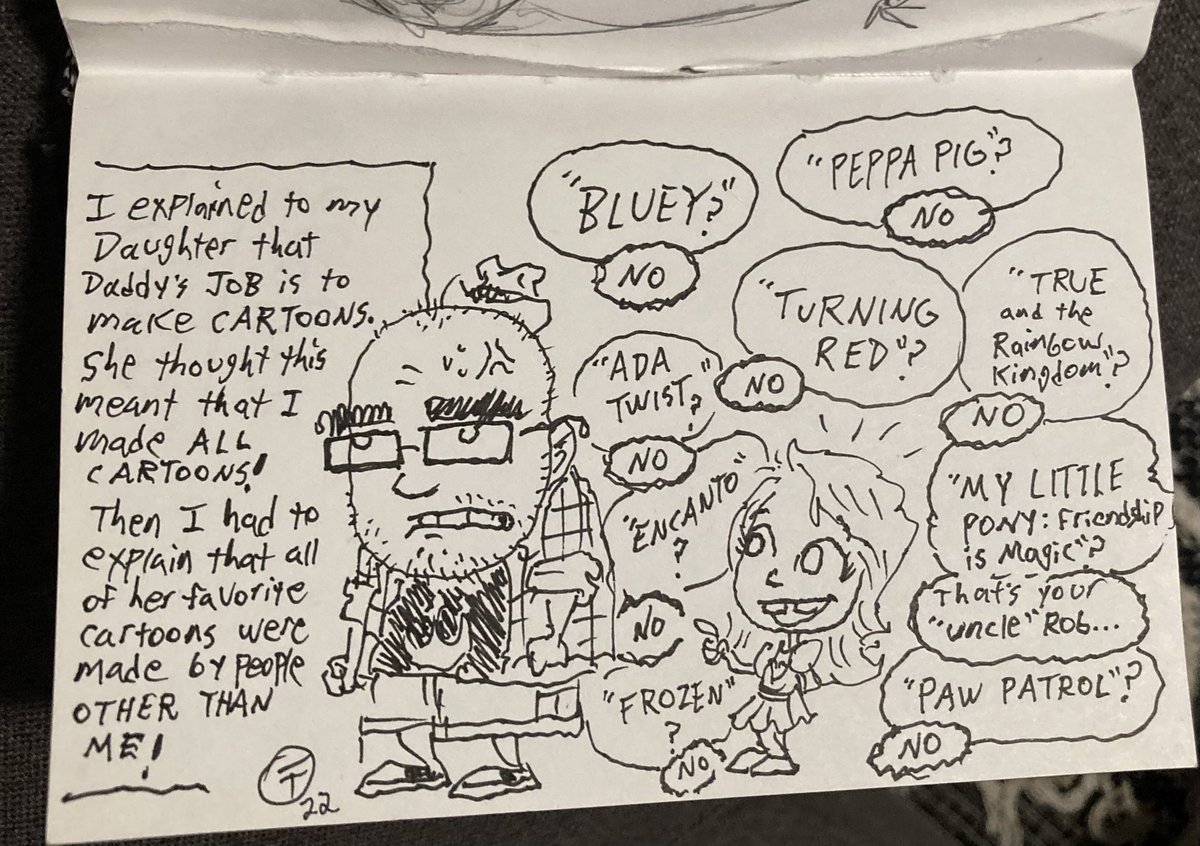 I explained to my
Daughter that
Daddy's JOB is to
make CARTOONS.
she thought this
meant that I
made ALL
CARTOONS!
Then I had to
explain that all
of her favorite
cartoons were
made by people
OTHER THAN
ME!
"BLUEY?"
NO
"PEPPA PIG"?
NO
"TURNING
RED"?
NO
"TRUE
and the
Rainbow
Kingdom"?
NO
"ADA
TWIST"?
NO
"ENCANTO"
?
NO
"MY LITTLE
PONY: Friendship
is Magic"?
That's your
"uncle" Rob...
"FROZEN"
?
NO
"PAW PATROL"?
NO
22